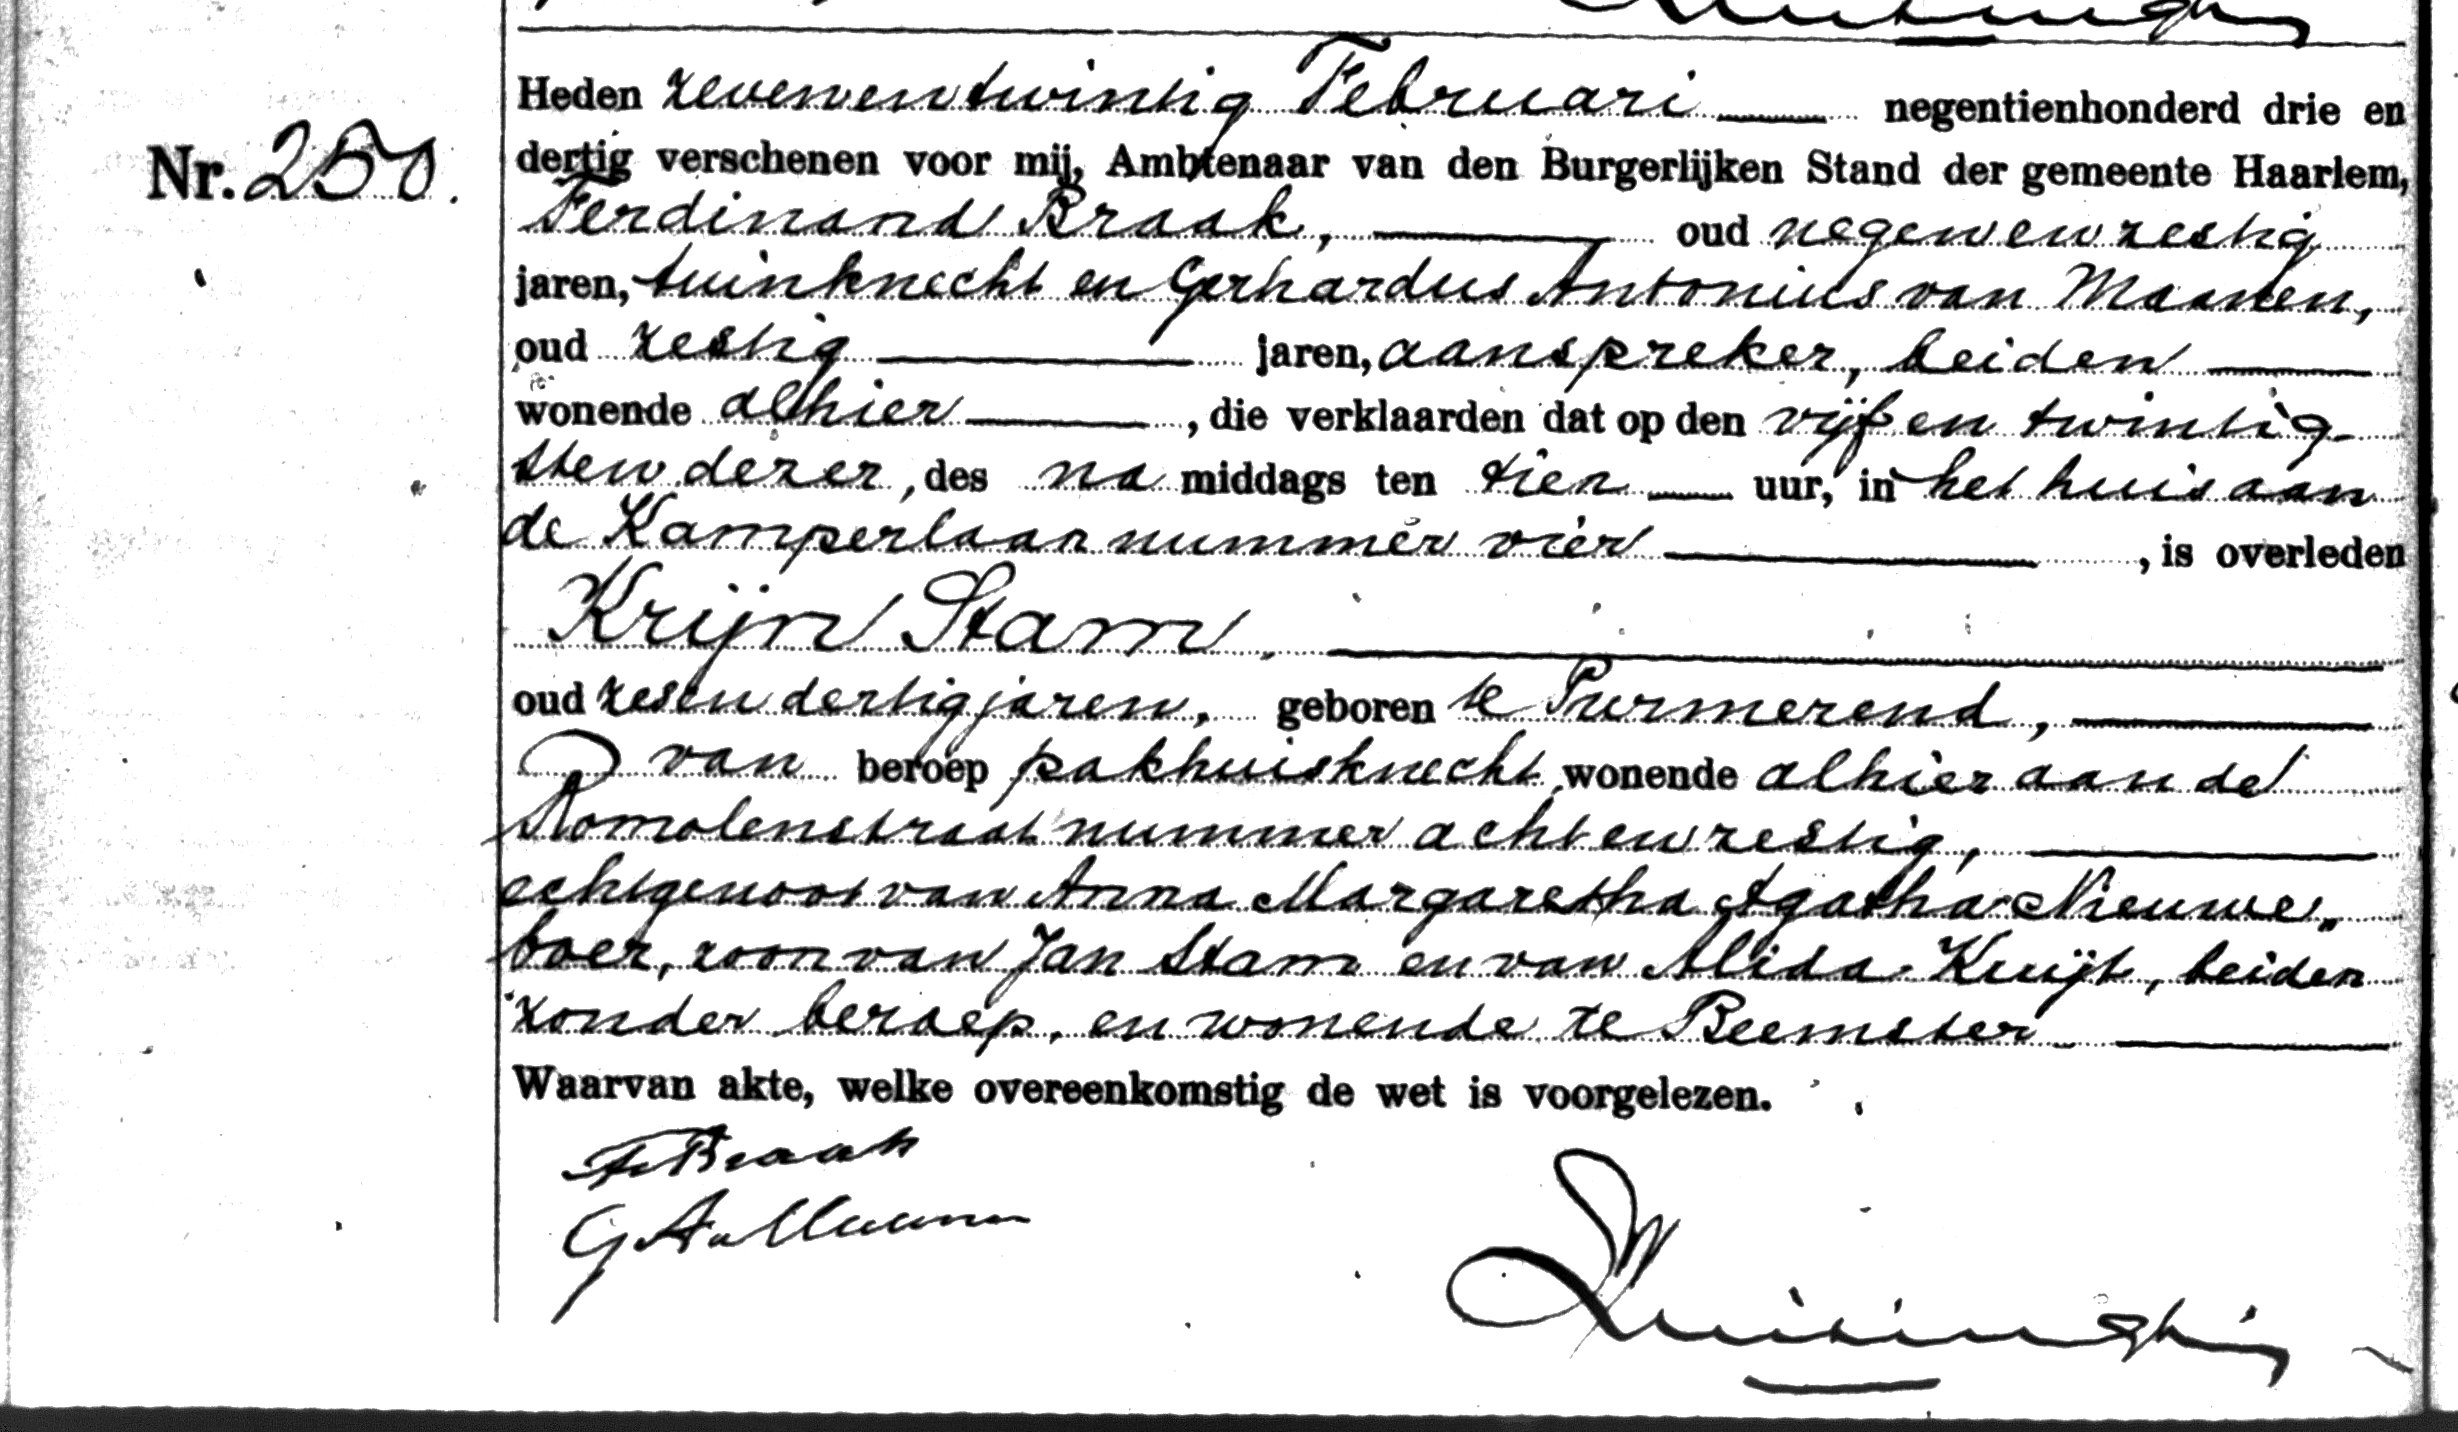 Heden zevenentwintig Februari negentienhonderd drie en
Nr. 250.
dertig verschenen voor mij, Ambtenaar van den Burgerlijken Stand der gemeente Haarlem,
Ferdinand Braak, oud negenenzestig
jaren, tuinknecht en Gerhardus Antonius van Maanen,
oud zestig jaren, aanspreker, beiden
wonende alhier, die verklaarden dat op den vijf en twintig-
sten dezer, des na middags ten tien uur, in het huis aan
de Kamperlaan nummer vier, is overleden
Krijn Stam,
oud zesendertig jaren, geboren te Purmerend,
van beroep pakhuisknecht, wonende alhier aan de
Romolenstraat nummer achtenzestig,
echtgenoot van Anna Margaretha Agatha Nieuwe„
boer, zoon van Jan Stam en van Alida Kuijt, beiden
zonder beroep, en wonende te Beemster
Waarvan akte, welke overeenkomstig de wet is voorgelezen.
F Braak